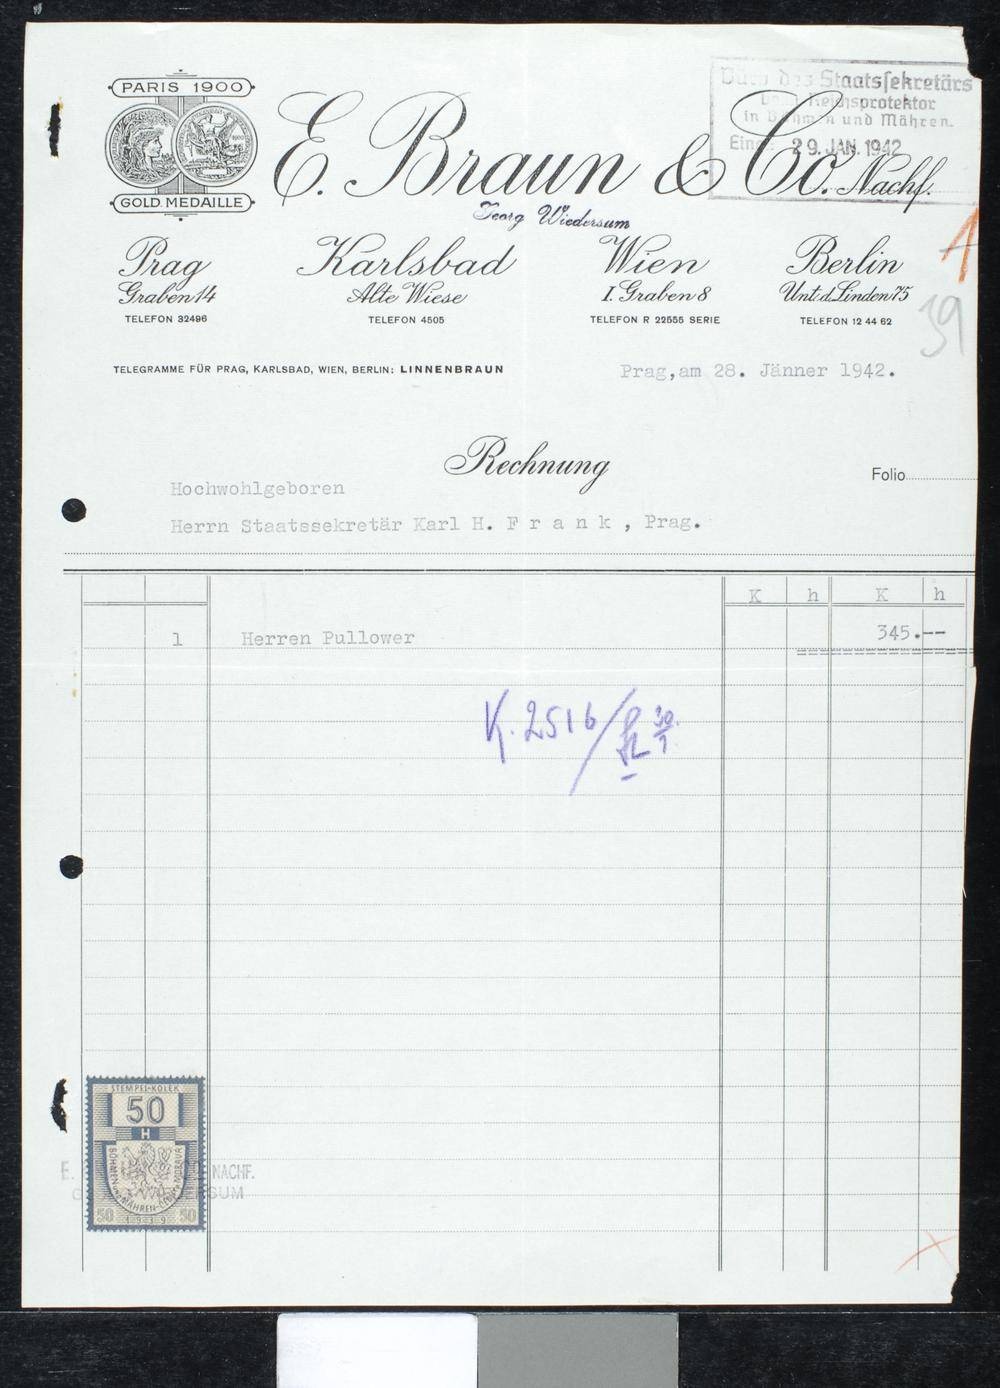 PARIS 1900
GOLD. MEDAILLE
E. Braun & Co. Nachf.
Georg Wiedersum
Büro des Staatssekretärs
beim Reichsprotektor
in Böhmen und Mähren.
Eing.: 29. JAN. 1942
1
39
Prag
Graben 14
TELEFON 32496
Karlsbad
Alte Wiese
TELEFON 4505
Wien
I. Graben 8
TELEFON R 22555 SERIE
Berlin
Unt. d. Linden 75
TELEFON 12 44 62
TELEGRAMME FÜR PRAG, KARLSBAD, WIEN, BERLIN: LINNENBRAUN
Prag,am 28. Jänner 1942.
Rechnung
Folio
Hochwohlgeboren
Herrn Staatssekretär Karl H. F r a n k , Prag.
K h K h
1 Herren Pullower 345.--
K. 2516/ 30./1
STEMPEL-KOLEK
50
H
BÖHMEN UND MÄHREN - ČECHY A MORAVA
50 1939 50
E. NACHF.
G SUM